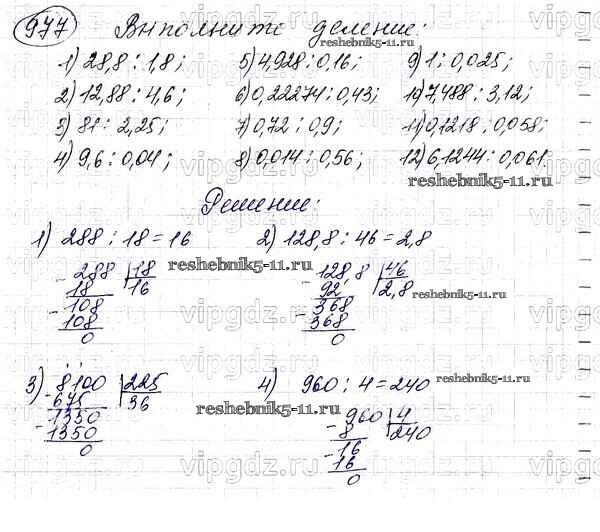 977 Выполните деление:
1) 28,8 : 1,8; 5) 4,928 : 0,16; 9) 1 : 0,025;
2) 12,88 : 4,6; 6) 0,22274 : 0,43; 10) 7,488 : 3,12;
3) 81 : 2,25; 7) 0,72 : 0,9; 11) 0,1218 : 0,058;
4) 9,6 : 0,04; 8) 0,014 : 0,56; 12) 6,1244 : 0,061.
Решение:
1) 288 : 18 = 16 2) 128,8 : 46 = 2,8
- 288 | 18 - 128,8 | 46
18 16 92 2,8
- 108 - 368
108 368
0 0
3) - 8100 | 225 4) 960 : 4 = 240
675 36 - 960 | 4
- 1350 8 240
1350 - 16
0 16
0
reshebnik5-11.ru
reshebnik5-11.ru
reshebnik5-11.ru
reshebnik5-11.ru
reshebnik5-11.ru
reshebnik5-11.ru
vipgdz.ru